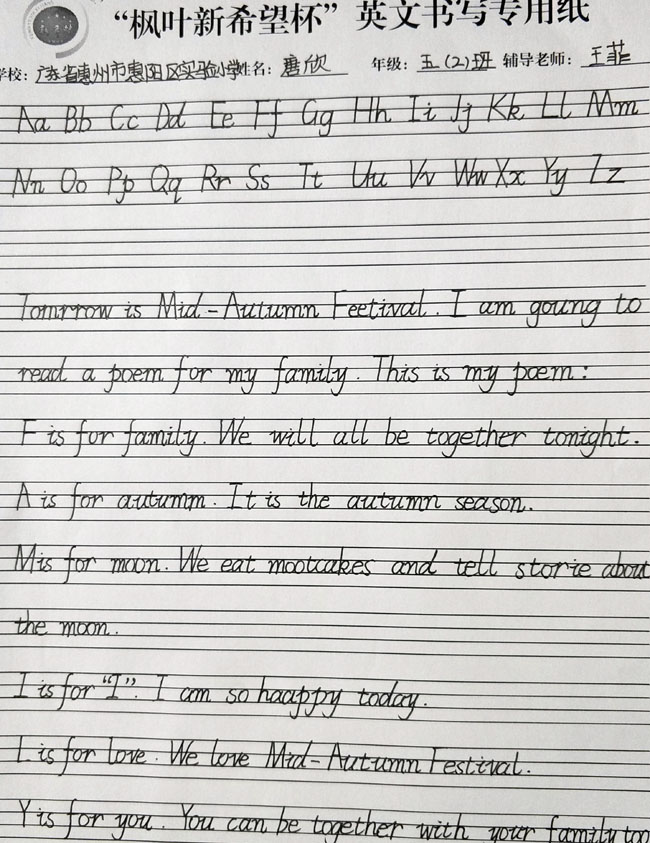 “枫叶新希望杯”英文书写专用纸
学校：广东省惠州市惠阳区实验小学 姓名：唐欣 年级：五(2)班 辅导老师：王菲
Aa Bb Cc Dd Ee Ff Gg Hh Ii Jj Kk Ll Mm
Nn Oo Pp Qq Rr Ss Tt Uu Vv Ww Xx Yy Zz
Tomrrow is Mid-Autumn Feetival. I am goung to
read a poem for my family. This is my poem:
F is for family. We will all be together tonight.
A is for autumm. It is the autumn season.
M is for moon. We eat mootcakes and tell storie about
the moon.
I is for “I”. I am so haappy today.
L is for love. We love Mid-Autumn Festival.
Y is for you. You can be together with your family too